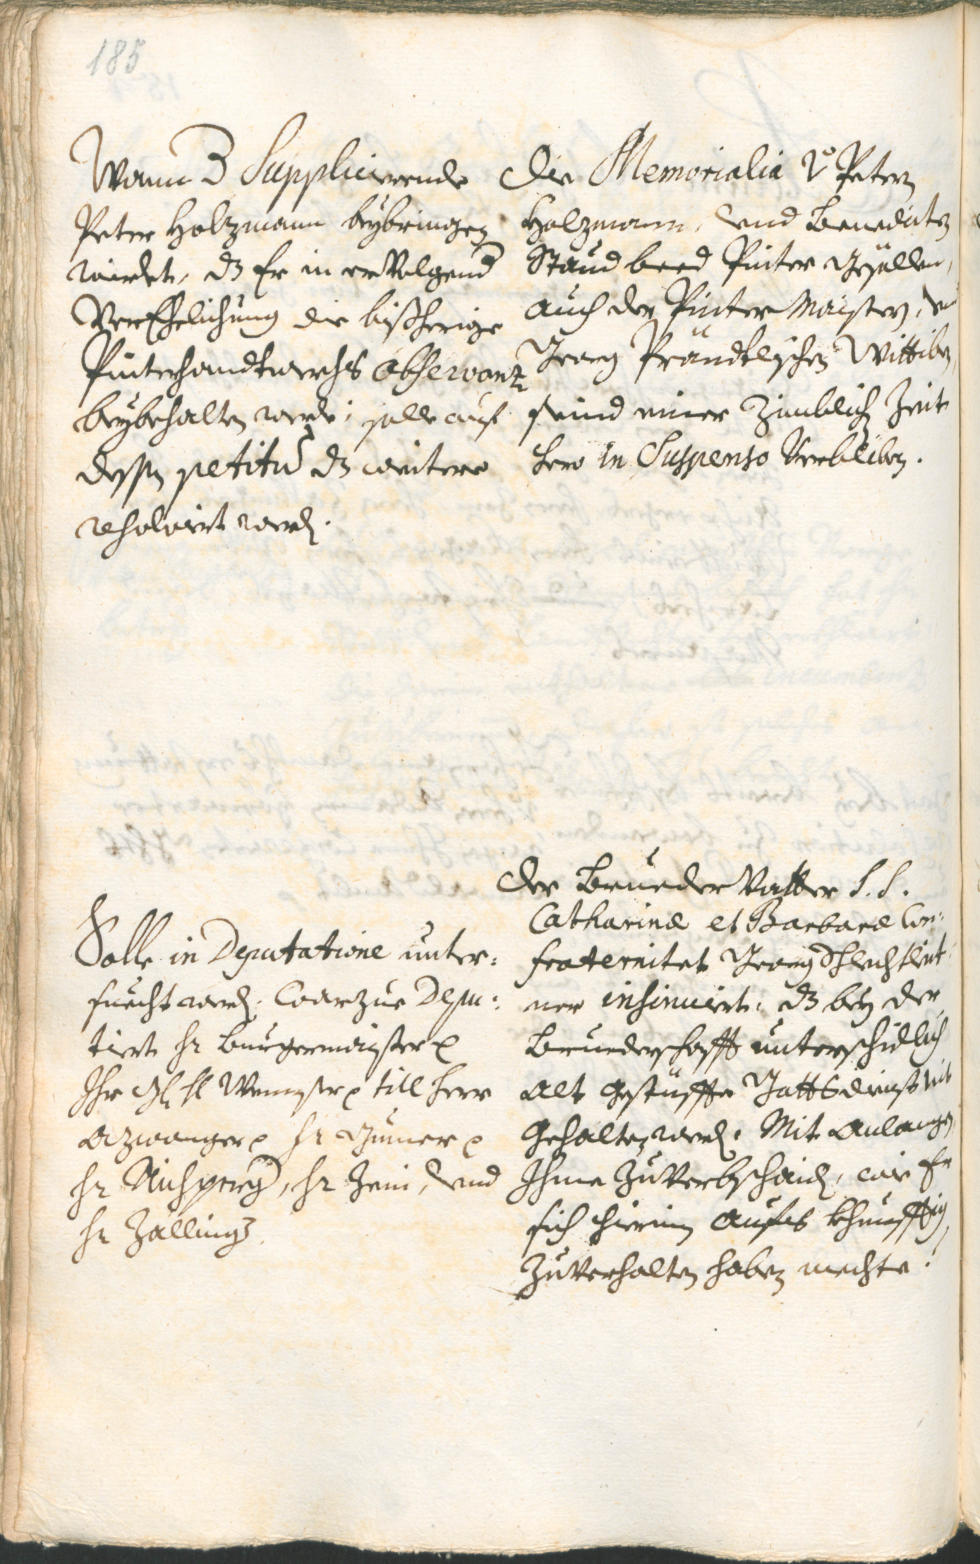 185
Wann D Supplicirende
Peter Holzmann beybringen
wirdet, dz Er in ervolgend
Verehelichung die bißherige
Pinterhandtwerchs observanz
beybehalten werde; solle auf
dessen petitum dz weitere
resolvirt werden.
Die Memorialia Peters
Holzmann, und Benedicten
Staud beed Pinter Gesellen,
auch der Pinter Maister, und
Georg Prändtlischen Wittiben
seind einer Zimblich Zeit
hero in Suspenso Verbliben.
Solle in Deputatione unter-
suecht werden. Warzue Depu-
tiert Hr Burgermaister
Ihr till Herr
Hr
Hr Hr und
Hr Zallinger
Der Brueder Vatter S. S.
Catharinæ et Barbaræ Con-
fraternitet Georg Schlechtleit-
ner insinuiert, dz bey der
Bruederschafft unterschidlich
alt gestüffte Gottsdienst nit
gehalten werden. Mit anlangen
Ihme zuverbschaiden, wie Er
sich hierin aufs khünfftig
zuverhalten haben mechte.